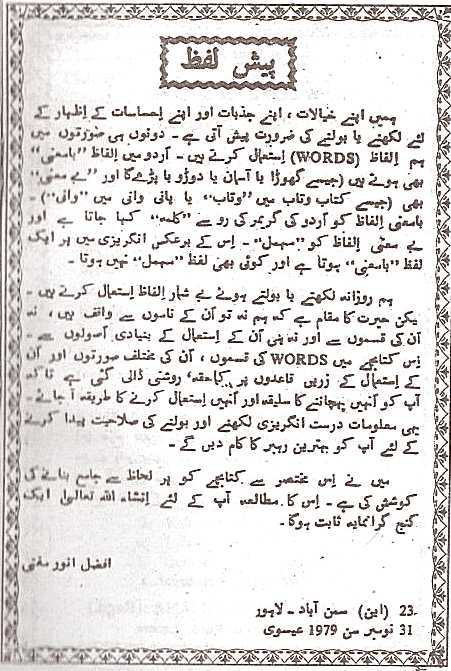 پیش لفظ
ہمیں اپنے خیالات ، اپنے جذبات اور اپنے احساسات کے اِظہار کے
لئے لکھنے یا بولنے کی ضرورت پیش آتی ہے ۔ دونوں ہی صورتوں میں
ہم اِلفاظ (WORDS) اِستعمال کرتے ہیں ۔ اُردو میں اِلفاظ ”بامعنی“
بھی ہوتے ہیں (جیسے گھوڑا یا آسمان یا دوڑو یا پڑےگا) اور ”بے معنی“
بھی (جیسے کتاب وتاب میں ”وتاب“ یا پانی وانی میں ”وانی“) ۔
بامعنی اِلفاظ کو اُردو کی گریمر کی رو سے ”کلمہ“ کہا جاتا ہے اور
بے معنی اِلفاظ کو ”مہمل“ ۔ اِس کے برعکس انگریزی میں ہر ایک
لفظ ”بامعنی“ ہوتا ہے اور کوئی بھی لفظ ”مہمل“ نہیں ہوتا ۔
ہم روزانہ لکھتے یا بولتے ہوئے بے شمار اِلفاظ اِستعمال کرتے ہیں ۔
لیکن حیرت کا مقام ہے کہ ہم نہ تو اُن کے ناموں سے واقف ہیں ، نہ
اُن کی قسموں سے اور نہ ہی اُن کے اِستعمال کے بنیادی اُصولوں سے ۔
اِس کتابچے میں WORDS کی قسموں ، اُن کی مختلف صورتوں اور اُن
کے اِستعمال کے زریں قاعدوں پر کماحقہ‘ روشنی ڈالی گئی ہے تاکہ
آپ کو اُنہیں پہچاننے کا سلیقہ اور اُنہیں اِستعمال کرنے کا طریقہ آ جائے ۔
یہی معلومات درست انگریزی لکھنے اور بولنے کی صلاحیت پیدا کرنے
کے لئے آپ کو بہترین رہبر کا کام دیں گے ۔
میں نے اِس مختصر سے کتابچے کو ہر لحاظ سے جامع بنانے کی
کوشش کی ہے ۔ اِس کا مطالعہ آپ کے لئے اِنشاء اللہ تعالیٰ ایک
گنج گرانمایہ ثابت ہوگا ۔
افضل انور مفتی
23۔ (این) سمن آباد ۔ لاہور
31 نومبر سن 1979 عیسوی